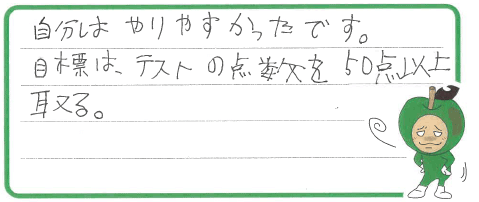 自分はやりやすかったです。
目標は、テストの点数を50点以上
取る。